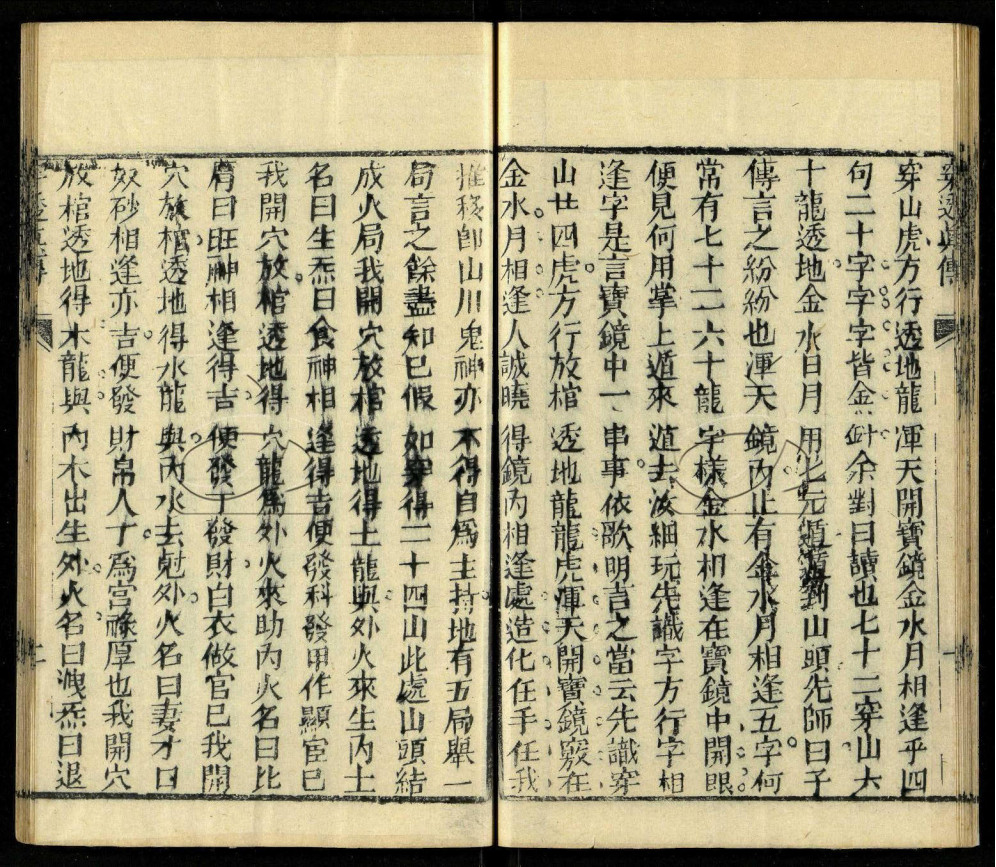 穿透眞傳
穿山虎方行透地龍渾天開寶鏡金水月相逢乎四
句二十字字字皆金針余對曰讀也七十二穿山六
十龍透地金水日月用七元遁遁到山頭先師曰子
傳言之紛紛也渾天鏡內止有金水月相逢五字何
常有七十二六十龍字樣金水相逢在寶鏡中開眼
便見何用掌上遁來遁去汝細玩先識字方行字相
逢字是言寶鏡中一串事依歌明言之當云先識穿
山廿四虎方行放棺透地龍龍虎渾天開寶鏡竅在
金水月相逢人誠曉得鏡內相逢處造化任手任我
推移卽山川鬼神亦不得自爲主持地有五局舉一
局言之餘盡知已假如穿得二十四山此處山頭結
成火局我開穴放棺透地得土龍與外火來生內土
名曰生炁曰食神相逢得吉便發科發甲作顯宦已
我開穴放棺透地得穴龍爲外火來助內火名曰比
肩曰旺神相逢得吉便發于發財白衣做官已我開
穴放棺透地得水龍與內水去尅外火名曰妻才曰
奴砂相逢亦吉便發財帛人丁爲宫祿厚也我開穴
放棺透地得木龍與內木出生外火名曰洩炁曰退